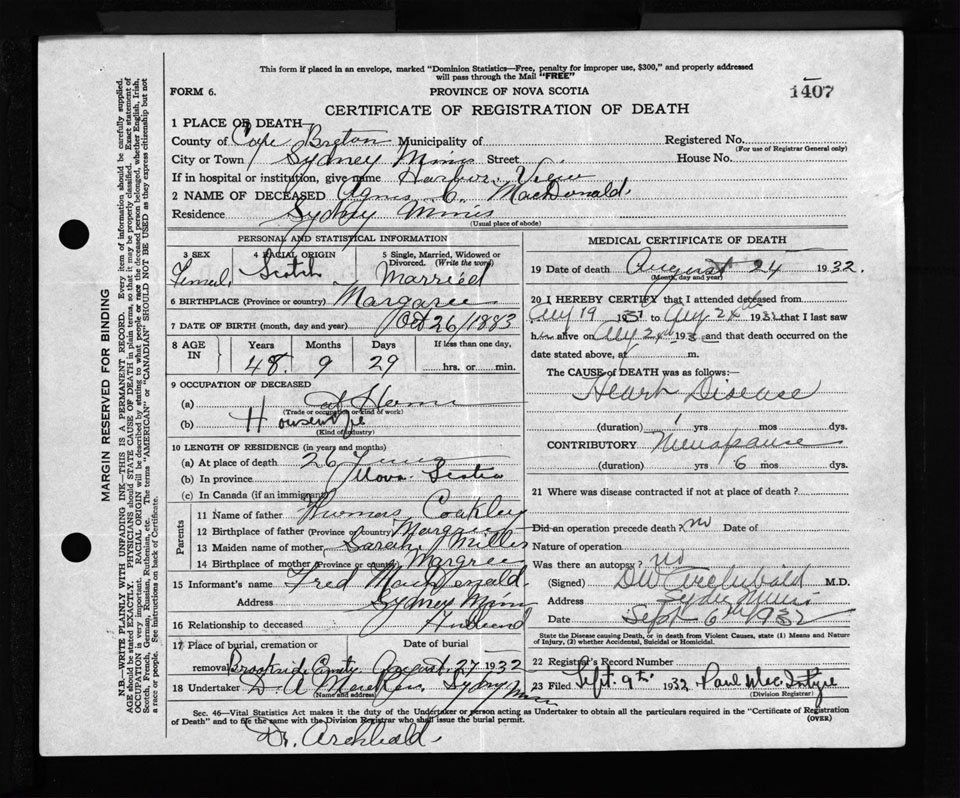 This form if placed in an envelope, marked "Dominion Statistics—Free, penalty for improper use, $300," and properly addressed
will pass through the Mail "FREE"
FORM 6. PROVINCE OF NOVA SCOTIA 1407
CERTIFICATE OF REGISTRATION OF DEATH
1 PLACE OF DEATH—
County of Cape Breton Municipality of Registered No.
(For use of Registrar General only)
City or Town Sydney Mines Street House No.
If in hospital or institution, give name Harbor View
2 NAME OF DECEASED Agnes C. MacDonald
Residence Sydney Mines
(Usual place of abode)
PERSONAL AND STATISTICAL INFORMATION
3 SEX 4 RACIAL ORIGIN 5 Single, Married, Widowed or
Divorced. (Write the word)
Female Scotch Married
6 BIRTHPLACE (Province or country) Margaree
7 DATE OF BIRTH (month, day and year) Oct 26/1883
8 AGE IN Years Months Days If less than one day,
48 9 29 hrs. or min.
9 OCCUPATION OF DECEASED
(a) at Home
(Trade or occupation or kind of work)
(b) Housewife
(Kind of industry)
10 LENGTH OF RESIDENCE (in years and months)
(a) At place of death 26
(b) In province Nova Scotia
(c) In Canada (if an immigrant)
Parents
11 Name of father Thomas Coakley
12 Birthplace of father (Province or country) Margaree
13 Maiden name of mother Sarah Miller
14 Birthplace of mother (Province or country) Margree
15 Informant's name Fred MacDonald
Address Sydney Mines
16 Relationship to deceased Husband
17 Place of burial, cremation or Date of burial
removal Brookside August 27 1932
18 Undertaker D. A. Sydney Mines
(Name and address)
MEDICAL CERTIFICATE OF DEATH
19 Date of death August 24 1932.
(Month, day and year)
20 I HEREBY CERTIFY that I attended deceased from
Aug 19 193 to Aug 24th 193 that I last saw
h alive on Aug 24th 193 and that death occurred on the
date stated above, at m.
The CAUSE of DEATH was as follows:
Heart Disease
(duration) 1 yrs mos dys.
CONTRIBUTORY Menopause
(duration) yrs 6 mos dys.
21 Where was disease contracted if not at place of death?
Did an operation precede death? no Date of
Nature of operation
Was there an autopsy? No
(Signed) DW Archibald M.D.
Address Sydney Mines
Date Sept 6th 1932
State the Disease causing Death, or in death from Violent Causes, state (1) Means and Nature
of Injury, (2) whether Accidental, Suicidal or Homicidal.
22 Registrar's Record Number
23 Filed Sept. 9th 1932 Paul MacIntyre
(Division Registrar)
Sec. 46—Vital Statistics Act makes it the duty of the Undertaker or person acting as Undertaker to obtain all the particulars required in the "Certificate of Registration
of Death" and to file the same with the Division Registrar who shall issue the burial permit. (OVER)
Dr. Archibald.
MARGIN RESERVED FOR BINDING
N.B.—WRITE PLAINLY WITH UNFADING INK—THIS IS A PERMANENT RECORD. Every item of information should be carefully supplied.
AGE should be stated EXACTLY. PHYSICIANS should STATE CAUSE OF DEATH in plain terms, so that it may be properly classified. Exact statement of
OCCUPATION is very important. RACIAL ORIGIN will be described by stating to what people or race the deceased person belonged, whether English, Irish,
Scotch, French, German, Russian, Ruthenian, etc. The terms "AMERICAN" or "CANADIAN" SHOULD NOT BE USED as they express citizenship but not
a race or people. See instructions on back of Certificate.